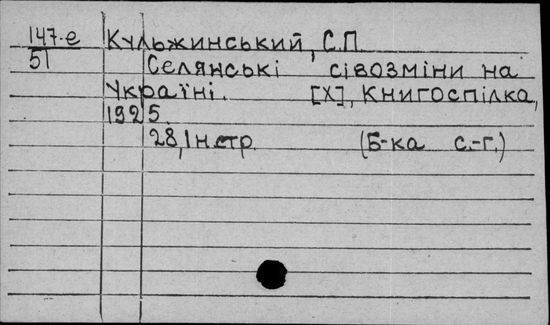 147-е Кульжинський, С.П.
51 Селянські сівозміни на
Україні. [Х], Книгоспілка,
1925.
28,1 н.стр. (Б-ка с.-г.)